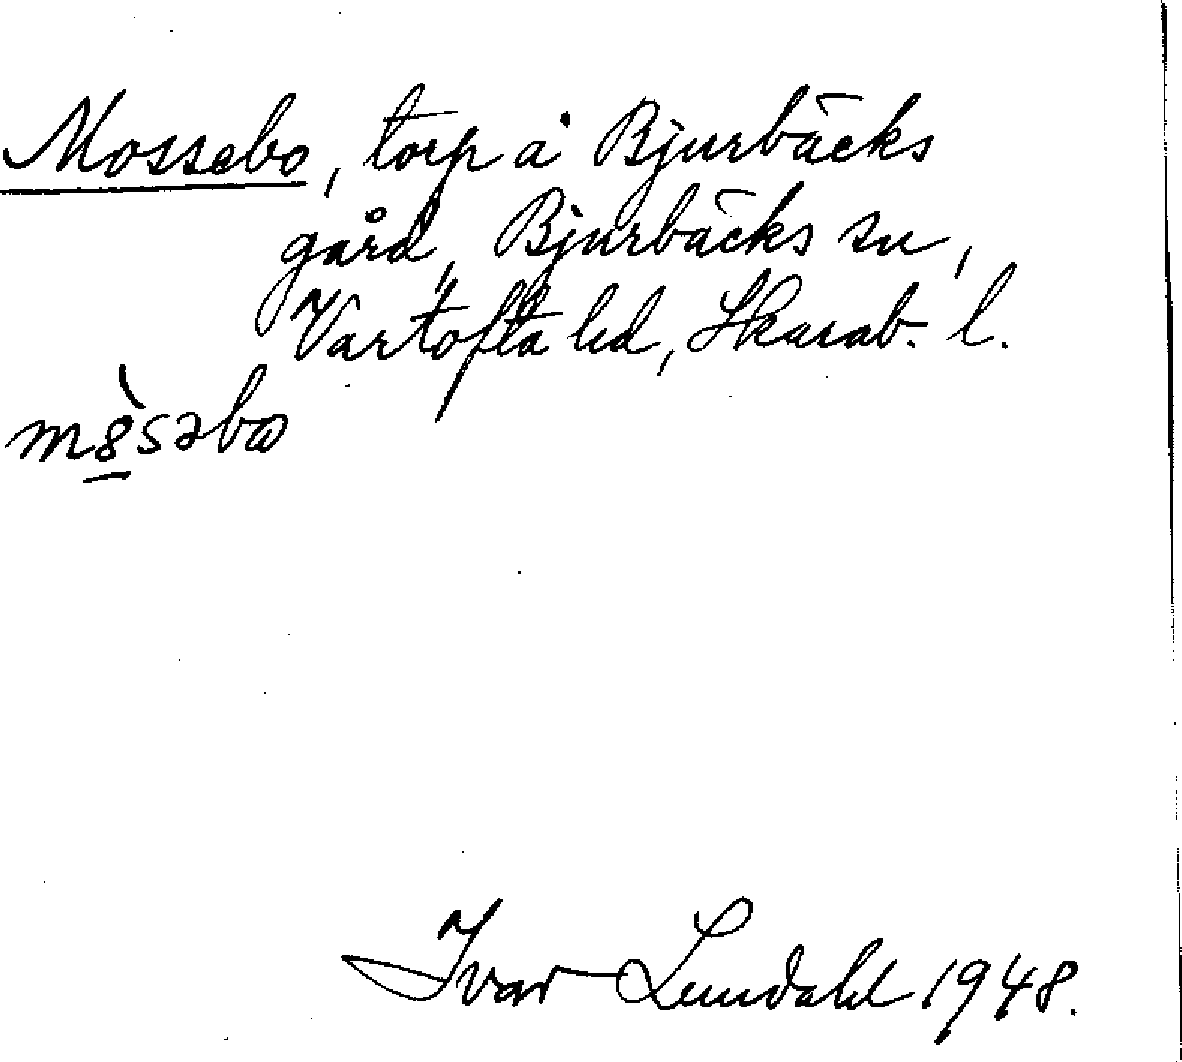 Mossebo, torp å Bjurbäcks
gård, Bjurbäcks sn,
Vartofta hd, Skarab. l.
m8̀səbω
Ivar Lundahl 1948.